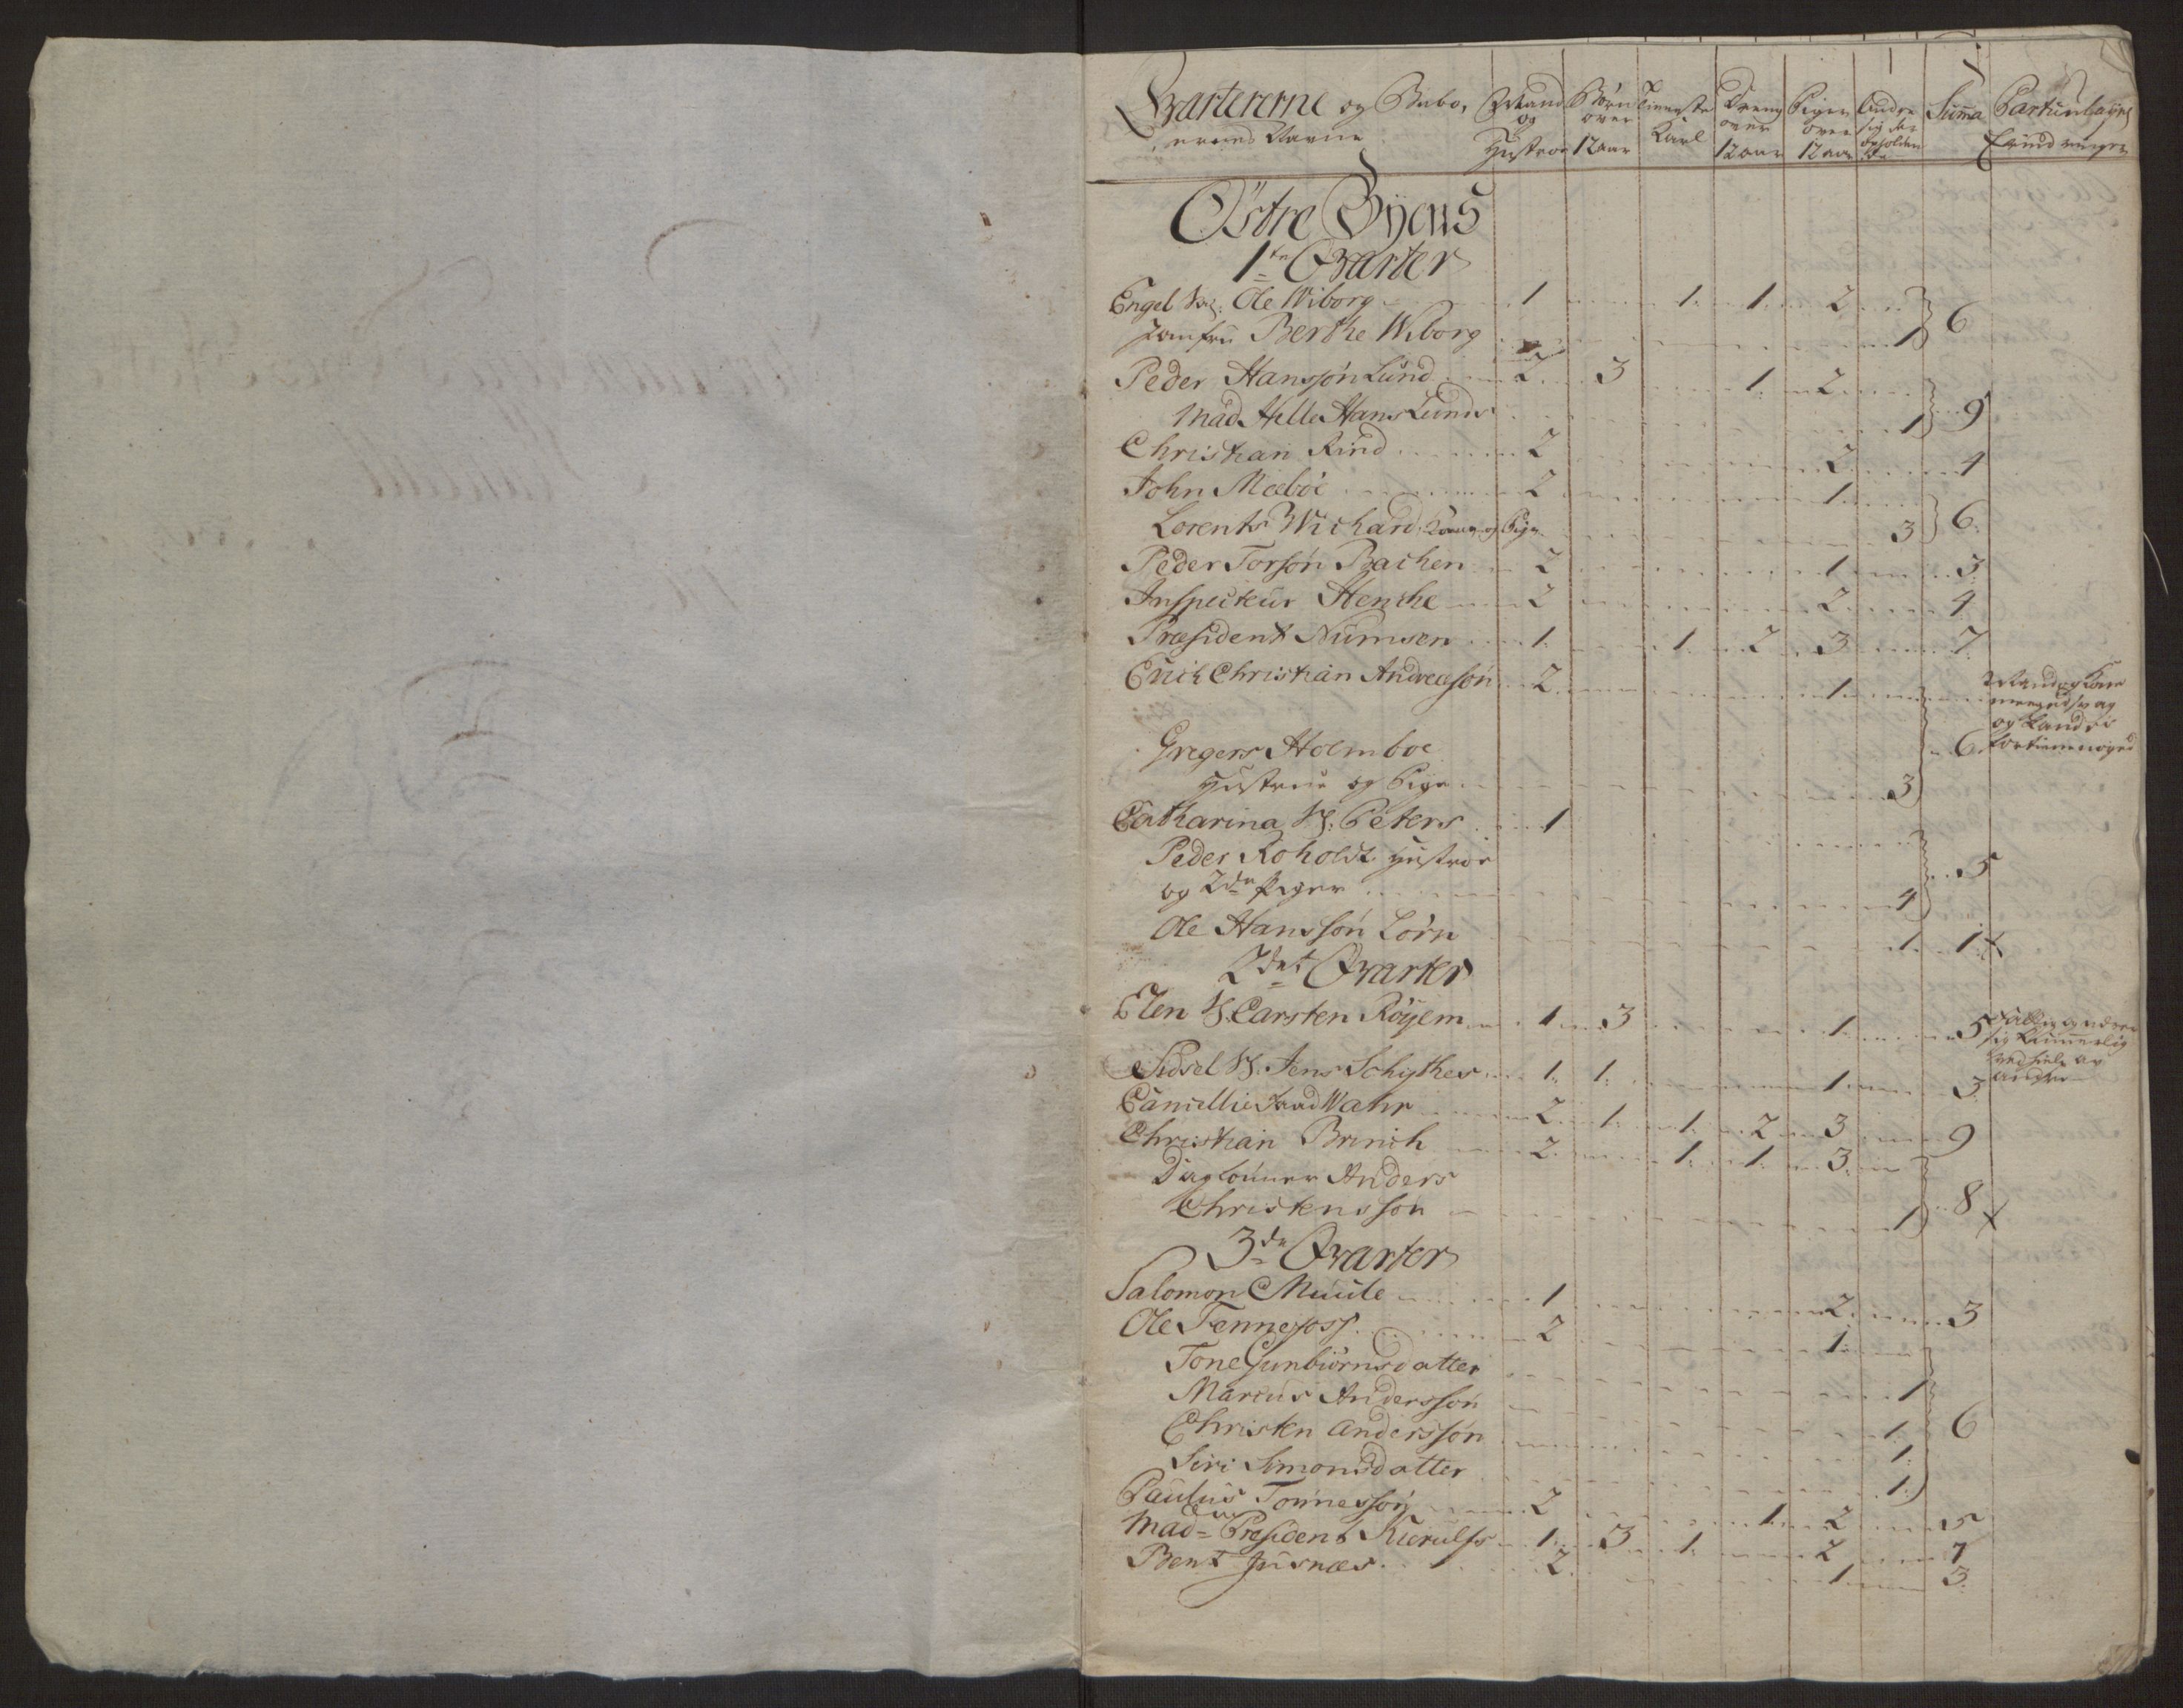 Qvartererne og Bebo, Mand og Hustroe Børn over 12 aar Tieneste Karl Dreng over 12 aar Piger over 12 aar Andre sig der opholdende Summa
ernes Navne
Østre Byens
1te Qvarter
Engel Sal: Ole Wiborg 1 1. 1. 2
Jomfru Berthe Wiborg 1 6
Peder Hanssøn Lund 2 3 1. 2
Mad Helle Hans Lunds 1 9
Christian Rind 2 2 4
John Mæbøe 2 1.
Lorents Wichard, Kone og Pige 3 6.
Peder Torsøn Bachen 2 1 3.
Inspecteur Henche 2 2 4
Præsident Numsen 1. 1 2 3 7.
Erich Christian Andreasøn 2 1. Mand og Kone
Gregers Holmboe 6
Hustrue og Pige 3
Catharina S: Peters 1
Peder Roholdt Hustroe
og 2de Piger 4 5
Ole Hanssøn Lörn 1. 1 x
2det Qvarter
Elen S. Carsten Röyem 1 3 1. 5
Sidsel S. Jens Schythes 1. 1. 1. 3.
Cancellie Raad Wahr 2. 1. 1. 2 3 9
Christian Brinch 2. 1. 1. 3.
Daglønner Anders
Christenssøn 1 8 x
3de Qvarter
Salomon Muule 1 2 3
Ole Tennesøss 2 1.
Tone Gunbiørnsdatter 1
Marcus Anderssøn 1. 6
Christen Anderssøn 1.
Siri Simonsdatter 1.
Paulus Tönnessøn 2 1. 2 5
Mad= Præsident Kierulfs 1. 3 1. 2 7
Bent Jusnæs 2. 1. 3.